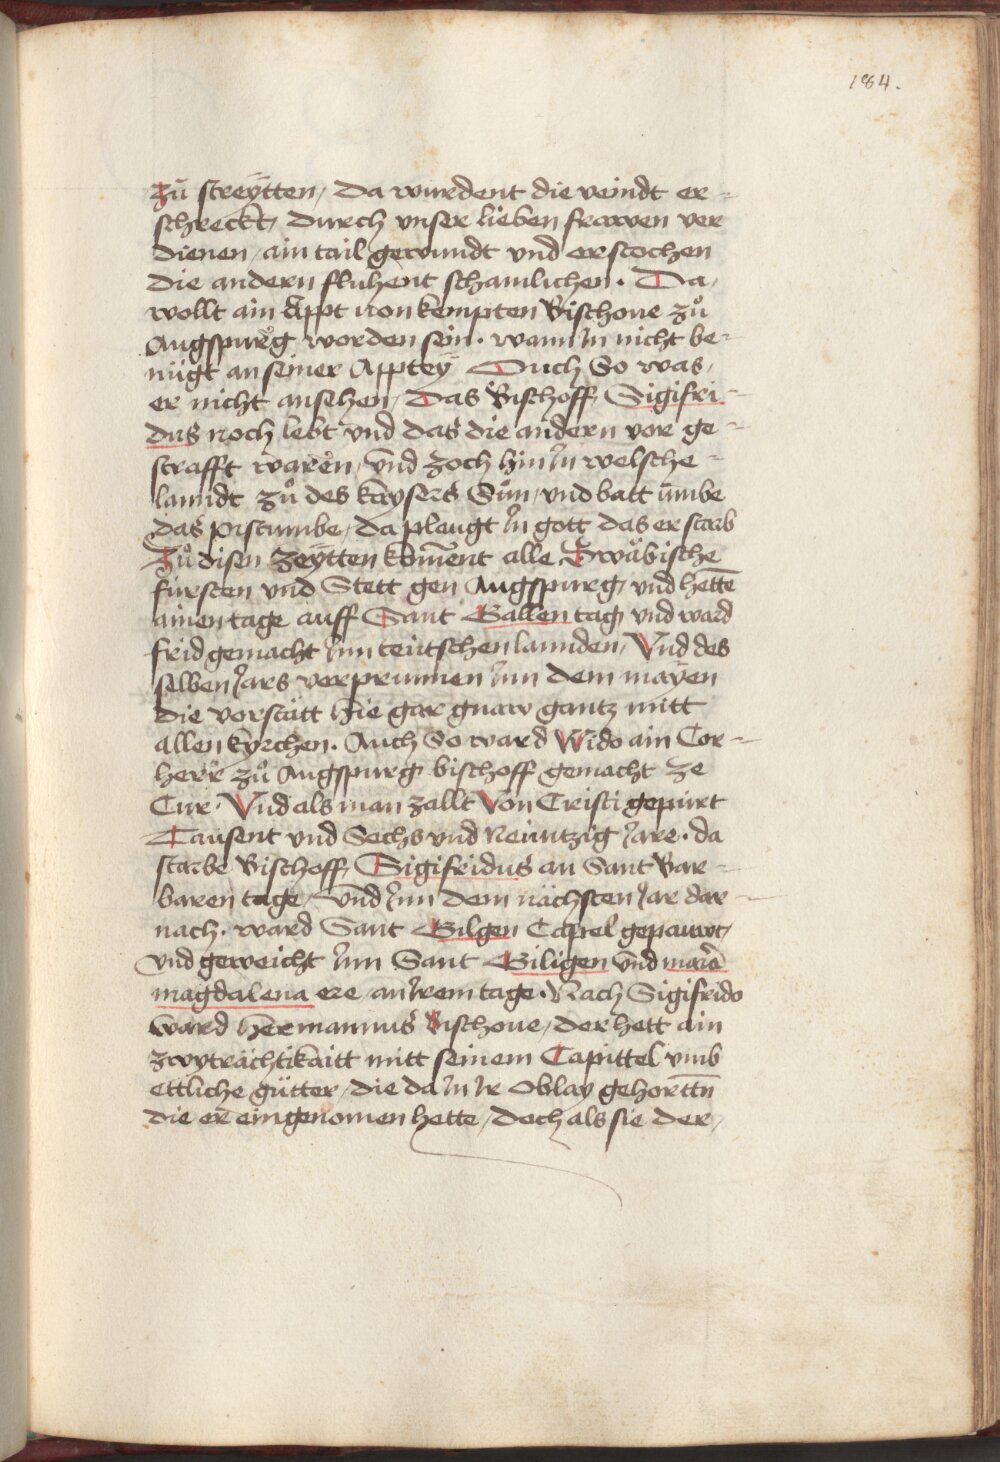 184.
zů streÿtten / da wurdent die veindt er-
schreckt / durch vnser lieben frawen ver
dienen / ain tail gewundt vnd erstochen
die andern fluhent schamlichen. Da /
wollt ain Appt von kempten Bischoue zů
Augspurg worden sein. wann In nicht be-
nügt an seiner Apptey Ouch So was /
er nicht ansehen / Das Bischoff Sigifri-
dus noch lebt vnd das die andern vor ge-
strafft waren / vnd zoch hin In welsche-
lanndt zů des kaysers Sun / vnd batt vmbe
das pistumbe / da plaugt In gott das er starb
Zů disen zeÿtten koment alle Swäbische
fürsten vnd Stett gen Augspurg / vnd hette
ainen tage auff Sant Gallen tag vnd ward
frid gemacht Inn teutschen lannden / Vnd des
selben Jars verprunnen Inn dem mayen
die vorstatt hie gar gnaw gantz mitt
allen kyrchen. Auch So ward Wido ain Cor-
herr zů Augspurg bischoff gemacht ze
Cur. Vnd als man zallt Von Cristi gepurt
Tausent vnd Sechs vnd Neuntzig Jare. da
starbe Bischoff Sigifridus an Sant Bar-
baren tage / vnd Inn dem nächsten Jar dar-
nach. ward Sant Gilgen Capel gepauwt /
vnd geweicht Inn Sant Giligen vnd maria
magdalena ere / an Irem tage. Nach Sigifrido
ward Hermannus Bischoue / der hett ain
zwyträchtikaitt mitt seinem Capittel vmb
ettliche gütter / die da In Ir Oblay gehorttn
die er eingenomen hette / doch als sie der /